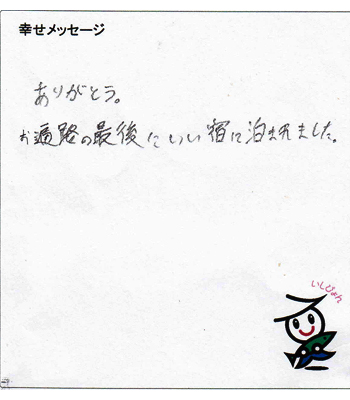 幸せメッセージ
ありがとう。
お遍路の最後にいい宿に泊まれました。
いしぴょん